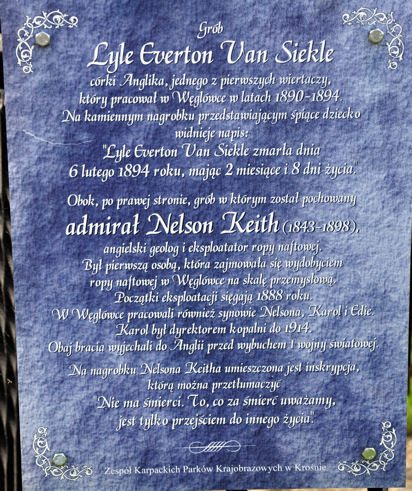 Grób
Lyle Everton Van Siekle
córki Anglika, jednego z pierwszych wiertaczy,
który pracował w Węglówce w latach 1890-1894.
Na kamiennym nagrobku przedstawiającym śpiące dziecko
widnieje napis:
"Lyle Everton Van Siekle zmarła dnia
6 lutego 1894 roku, mając 2 miesiące i 8 dni życia."
Obok, po prawej stronie, grób w którym został pochowany
admirał Nelson Keith (1843-1898),
angielski geolog i eksploatator ropy naftowej.
Był pierwszą osobą, która zajmowała się wydobyciem
ropy naftowej w Węglówce na skalę przemysłową.
Początki eksploatacji sięgają 1888 roku.
W Węglówce pracowali również synowie Nelsona, Karol i Edie.
Karol był dyrektorem kopalni do 1914.
Obaj bracia wyjechali do Anglii przed wybuchem I wojny światowej.
Na nagrobku Nelsona Keitha umieszczona jest inskrypcja,
którą można przetłumaczyć
"Nie ma śmierci. To, co za śmierć uważamy,
jest tylko przejściem do innego życia".
Zespół Karpackich Parków Krajobrazowych w Krośnie